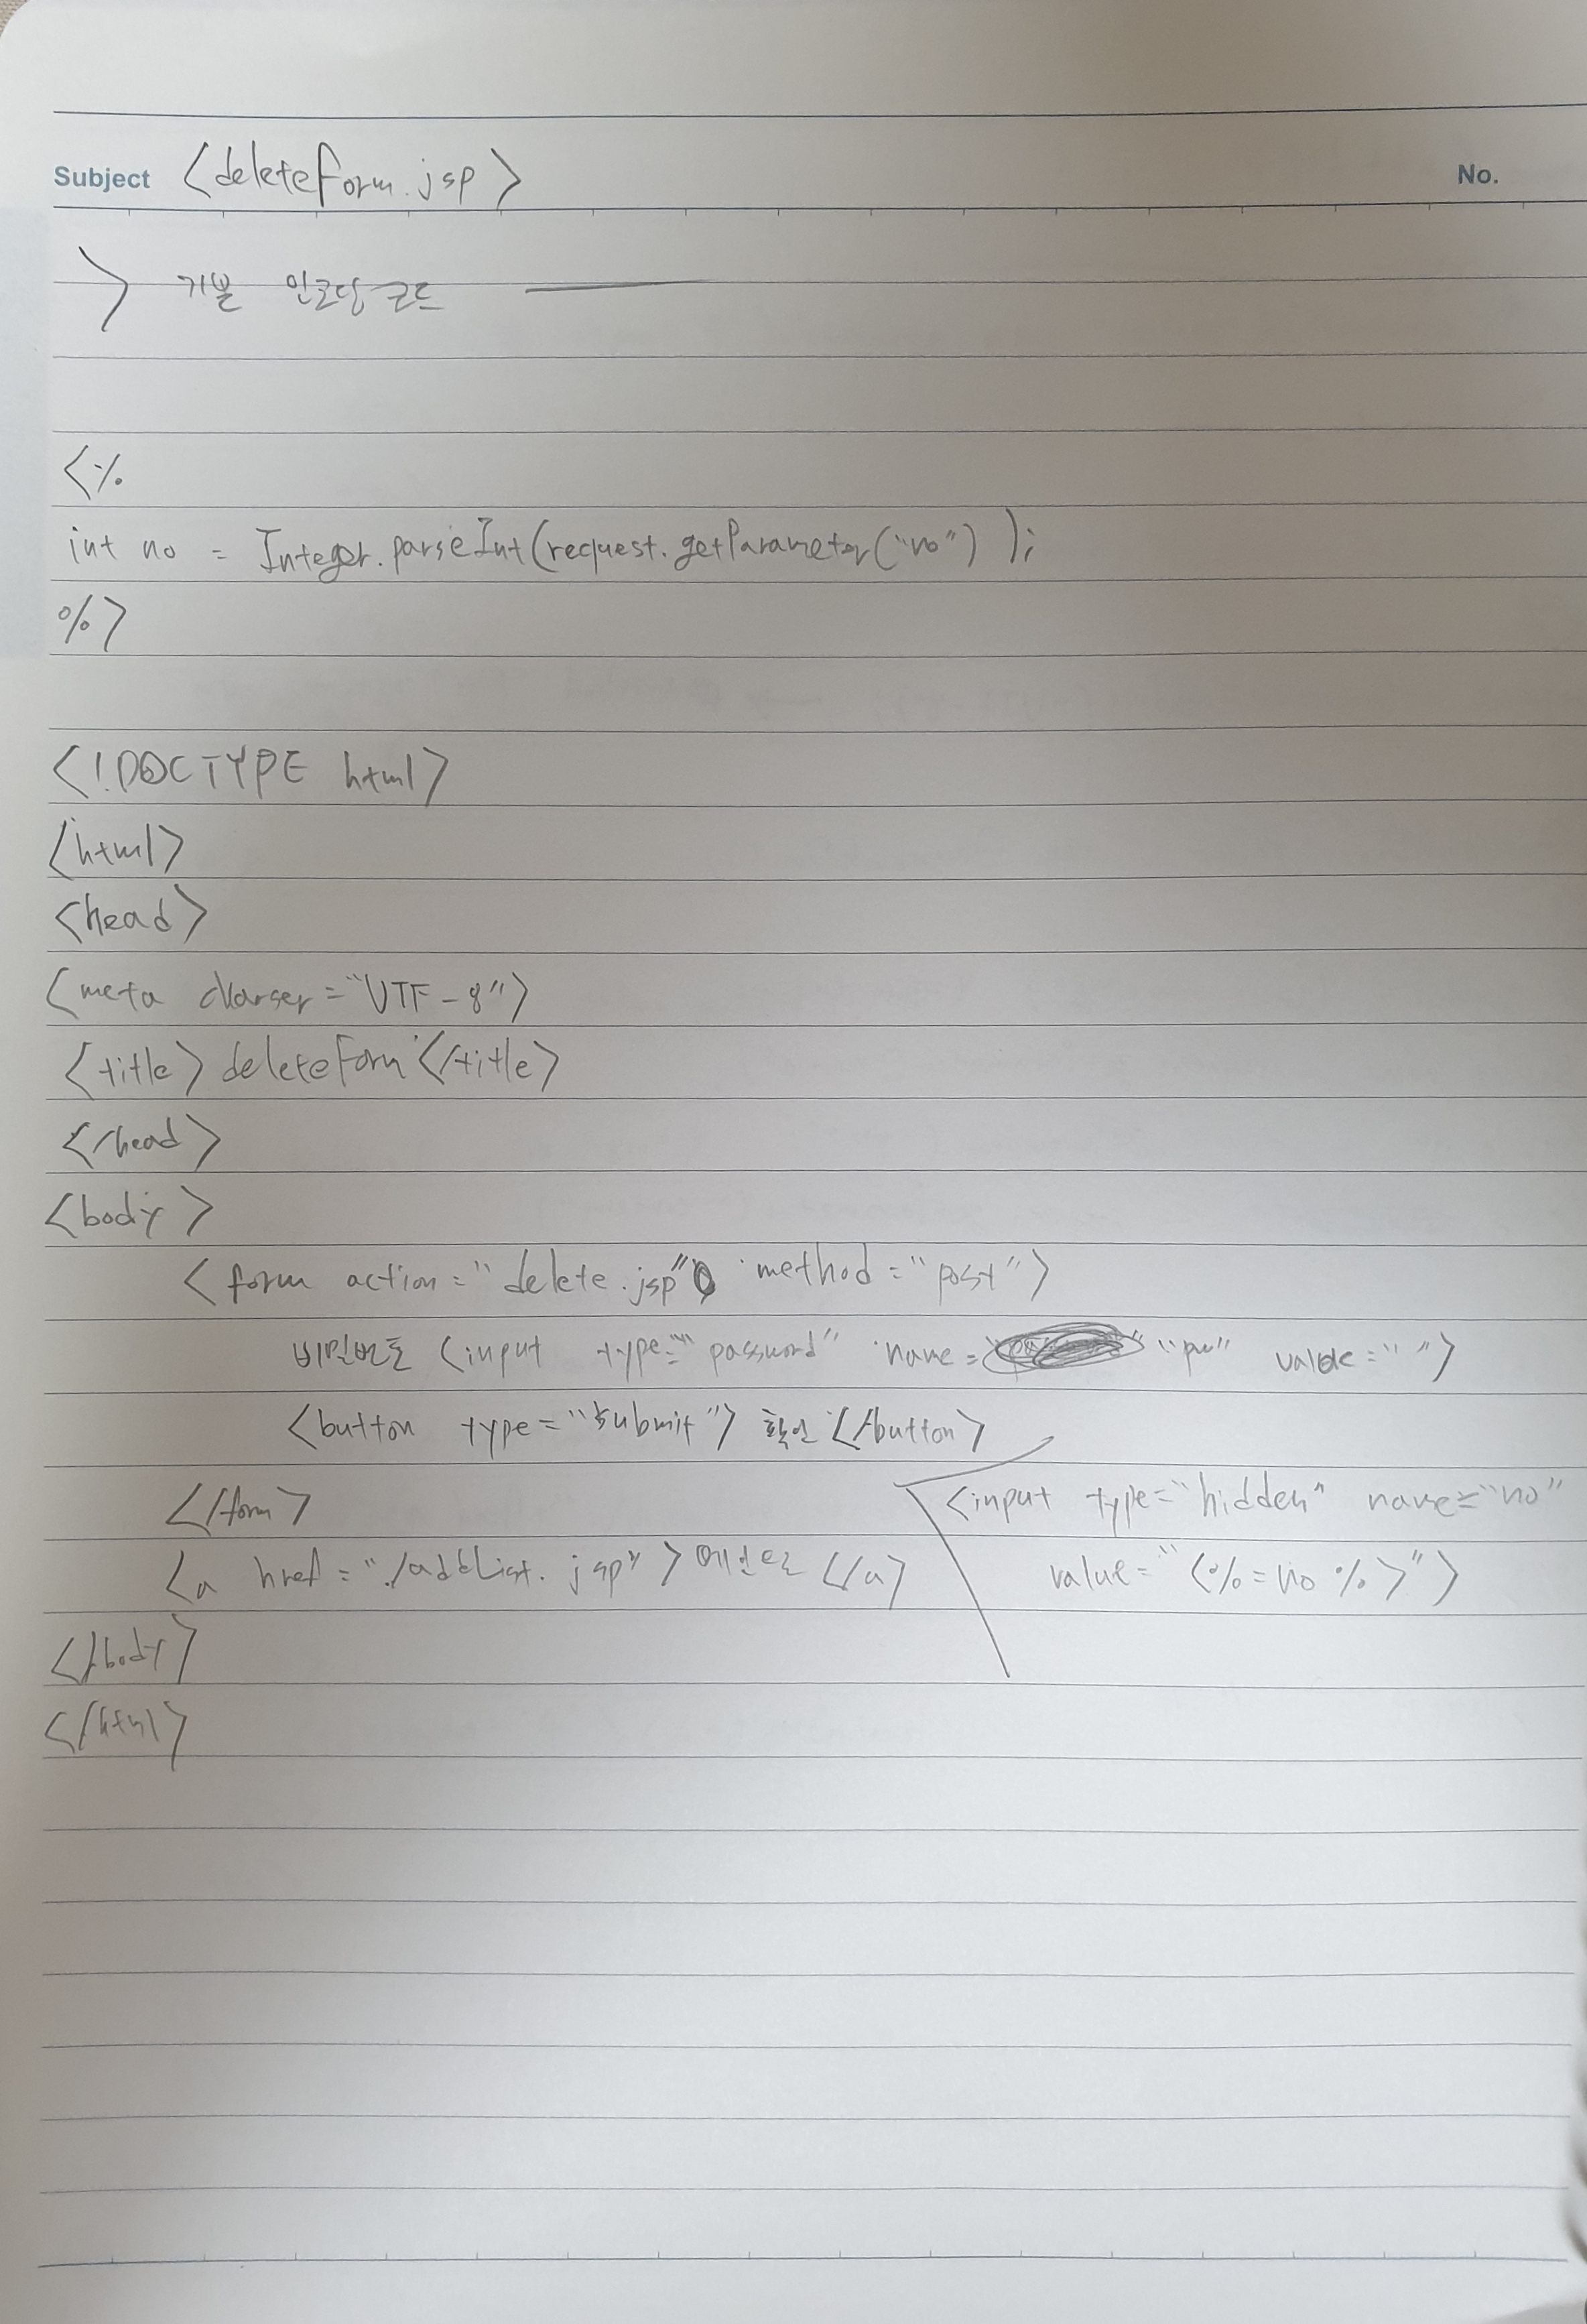 Subject <deleteform.jsp> No.
> 기본 인코딩 코드
<%
int no = Integer.parseInt(request.getParameter("no") );
%>
<!DOCTYPE html>
<html>
<head>
<meta charser="UTF-8">
<title> deleteForm </title>
</head>
<body>
<form action="delete.jsp" method="post">
비밀번호 <input type="password" name= "pw" value=" ">
<button type="submit"> 확인 </button>
<input type="hidden" name="no"
value="<%=no %>">
</form>
<a href="./addList.jsp" > 메인으로 </a>
</body>
</html>